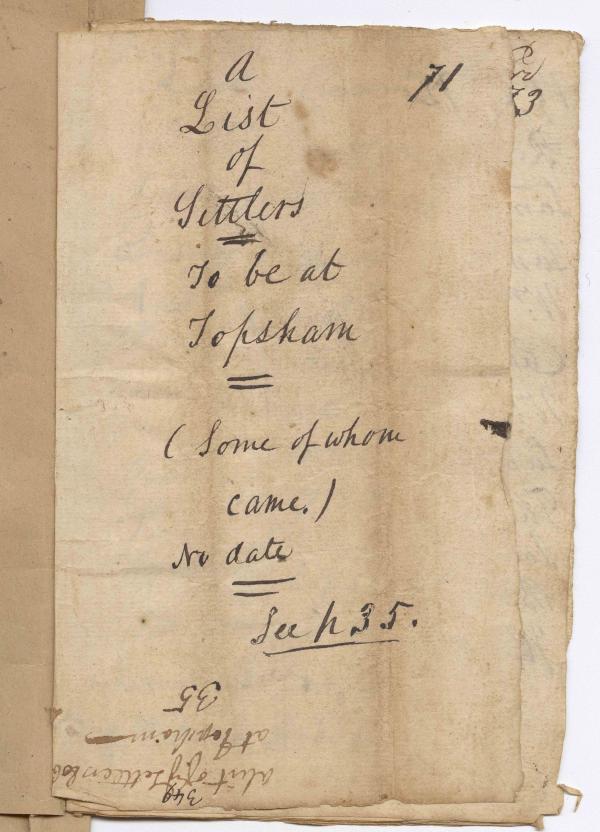 A
List
of
Settlers
To be at
Topsham
(Some of whom
came.)
No date
See p 35.
71
73
35
at Topsham
a list of ye Settlers to be
349